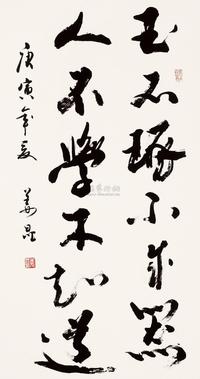 玉不琢不成器
人不學不知道
庚寅年夏 姜昆